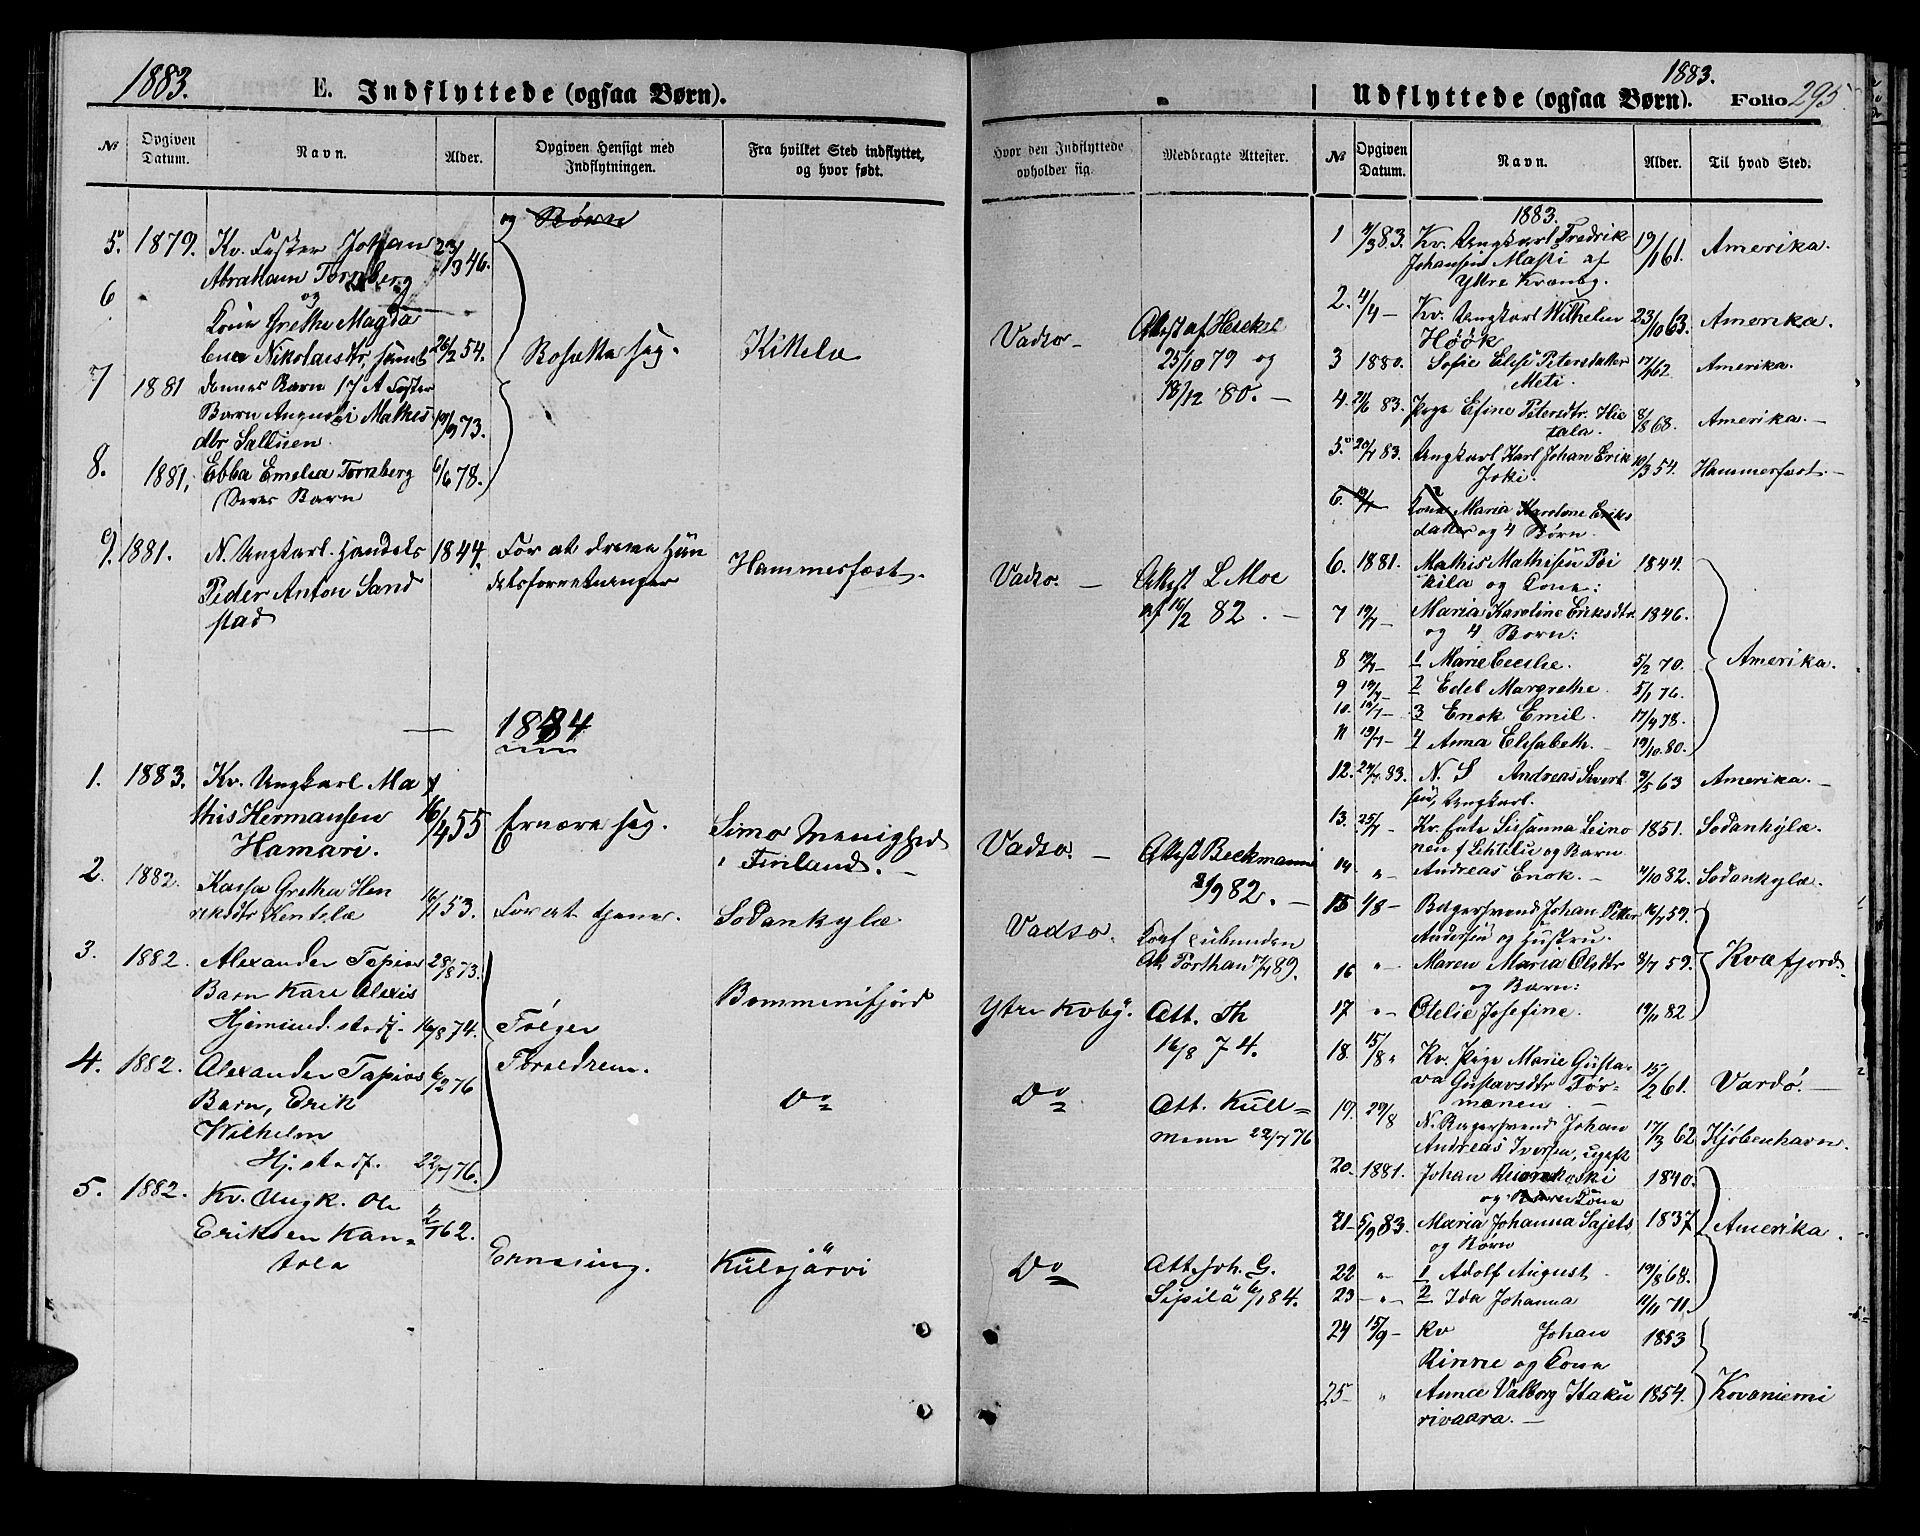 1883.
E. Indflyttede (ogsaa Børn).
№
Opgiven Datum.
Navn.
Alder.
Opgiven Hensigt med Indflytningen.
Fra hvilket Sted indflyttet, og hvor født.
og Børn
5. 1879. Kv. Fisker Johan 23/1 346.
Abraham Tornberg
6 og
Kone Grethe Magda
lena Nikolaisdtr, samt 26/2 54. Bosætte sig. Kittelæ
7 1881 dennes Barn
Mathis 19/9 73.
dtr
8. 1881, Ebba Emelia Tornberg 6/6 78.
Deres Barn
9. 1881. N. Ungkarl. Handels 1844. For at drive Han Hammerfest.
Peder Anton Sand delsforretninger
stad
1884
1. 1883. Kv. Ungkarl Ma
this Hermansen 16/4 55 Ernære sig. Simo Menighed
Hamari. i Finland.
2. 1882. Kaisa Gretha Hen
riksdtr Kentelæ 16/1 53. For at tjene. Sodankylæ
3. 1882. Alexander Tapios 28/8 73.
Barn Kare Alexis Bommenifjord
Hjemmed. stadf. 16/8 74. Følger
4. 1882. Alexander Tapios 6/2 76 Forældrene.
Barn, Erik Do
Wilhelm
Hj. stadf. 22/7 76.
5. 1882. Kv. Ungk. Ole
Eriksen Kan= 2/7 62.
tola Ernæring. Kulojärvi
1883.
Udflyttede (ogsaa Børn). Folio 295
Hvor den Indflyttede opholder sig.
Medbragte Attester.
№
Opgiven Datum.
Navn.
Alder.
Til hvad Sted.
Vadsø Attest af
25/10 79 og
18/12 80.
Vadsø. Attest L Moe
af 16/2 82.
Vadsø. Attest Beckmann
21/9 82.
Vadsø.
Porthan 17/7 89.
Ytre Kvby. Att. Th
16/8 74.
Do Att. Kull=
mann 22/7 76
Do Att Joh. G.
Sipilä 6/1 84.
1883.
1 4/3 83. Kv. Ungkarl Fredrik 19/1 61. Amerika.
Johansen Masti af
Ytre Kvænby.
2. 4/4 Kv. Ungkarl Wilhelm 23/10 63. Amerika.
Höök
3 1880. Sofie Else Petersdatter 17/4 62. Amerika.
Meti.
4. 21/6 83. Pige Efine Petersdtr. Hie 8/1 68. Amerika.
tala.
5. 20/7 83. Ungkarl Karl Johan Erik 10/3 54. Hammerfest.
Joki.
6. 19/7 Kone Maria Karoline Eriks
datter og 4 Børn.
6. 1881. Mathis Mathisen Poi 1844.
kila og Kone:
7 19/7 Maria Karoline Eriksdtr 1846.
og 4 Børn:
8 19/7 1 Marie Cecilie. 5/2 70. Amerika.
9 19/7 2 Edel Margrethe. 5/1 76.
10. 19/7 3 Enok Emil. 17/4 78.
11 19/7 4 Anna Elisabeth. 19/10 80.
12. 24/7 83. N. S Andreas Sivert 3/5 63 Amerika.
sen, Ungkarl.
13. 25/7 Kv. Enke Susanna Leino 1851. Sodankylæ.
nen f. Lehtelie og Barn.
14. " Andreas Enok. 4/10 82. Sodankylæ.
15 4/8 Bagersvend Johan Petter 16/7 59.
Andersen og Hustru.
16 " Maren Maria Olsdtr 3/7 59. Kvæfjord.
og Barn:
17 " Otelie Josefine. 19/11 82
18. 15/8 " Kv. Pige Marie Gusta=
va Gustavsdtr Tör= 13/2 61. Vardö.
mænen
19. 29/8 N. Bagersvend Johan 17/3 62 Kjøbenhavn.
Andreas Iversen, ugift
20. 1881. Johan 1840.
og Børn Kone
21 5/9 83. Maria Johanna Sajets 1837 Amerika.
og Børn
22 " 1 Adolf August 19/8 68.
23 " 2 Ida Johanna 11/11 71.
24 15/9 Kv Johan 1853
Rinne og Kone
25 " Anna Valborg Haku 1854 Kovaniemi
rivaara.